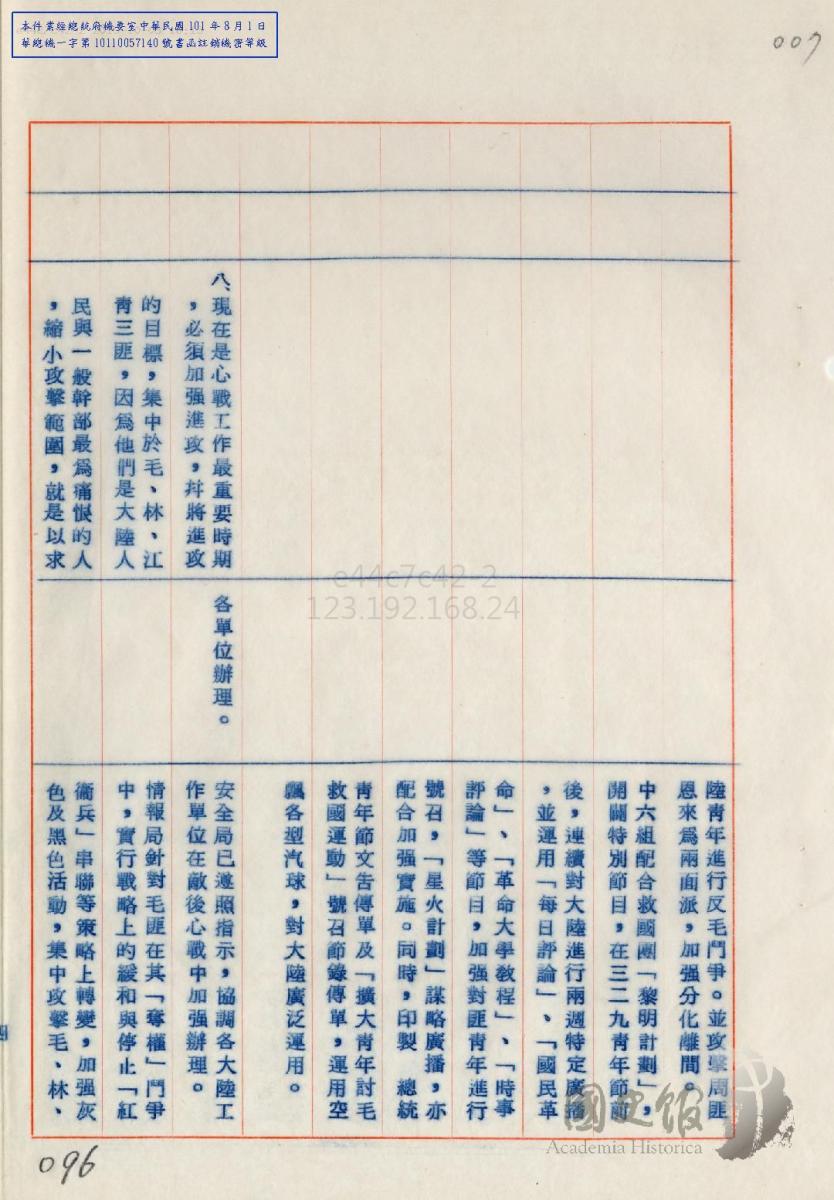 本件業經總統府機要室中華民國101年8月1日
華總機一字第10110057140號書函註銷機密等級
007
八、現在是心戰工作最重要時期
，必須加强進攻，幷將進攻
的目標，集中於毛、林、江
青三匪，因爲他們是大陸人
民與一般幹部最爲痛恨的人
，縮小攻擊範圍，就是以求
各單位辦理。
陸青年進行反毛鬥爭。並攻擊周匪
恩來爲兩面派，加强分化離間。
中六組配合救國團「黎明計劃」，
開闢特別節目，在三二九青年節前
後，連續對大陸進行兩週特定廣播
，並運用「每日評論」、「國民革
命」、「革命大學教程」、「時事
評論」等節目，加强對匪青年進行
號召，「星火計劃」謀略廣播，亦
配合加强實施。同時，印製　總統
青年節文告傳單及「擴大青年討毛
救國運動」號召節錄傳單，運用空
飄各型汽球，對大陸廣泛運用。
安全局已遵照指示，協調各大陸工
作單位在敵後心戰中加强辦理。
情報局針對毛匪在其「奪權」鬥爭
中，實行戰略上的緩和與停止「紅
衞兵」串聯等策略上轉變，加强灰
色及黑色活動，集中攻擊毛、林、
e44c7c42-2
123.192.168.24
國史館
Academia Historica
096